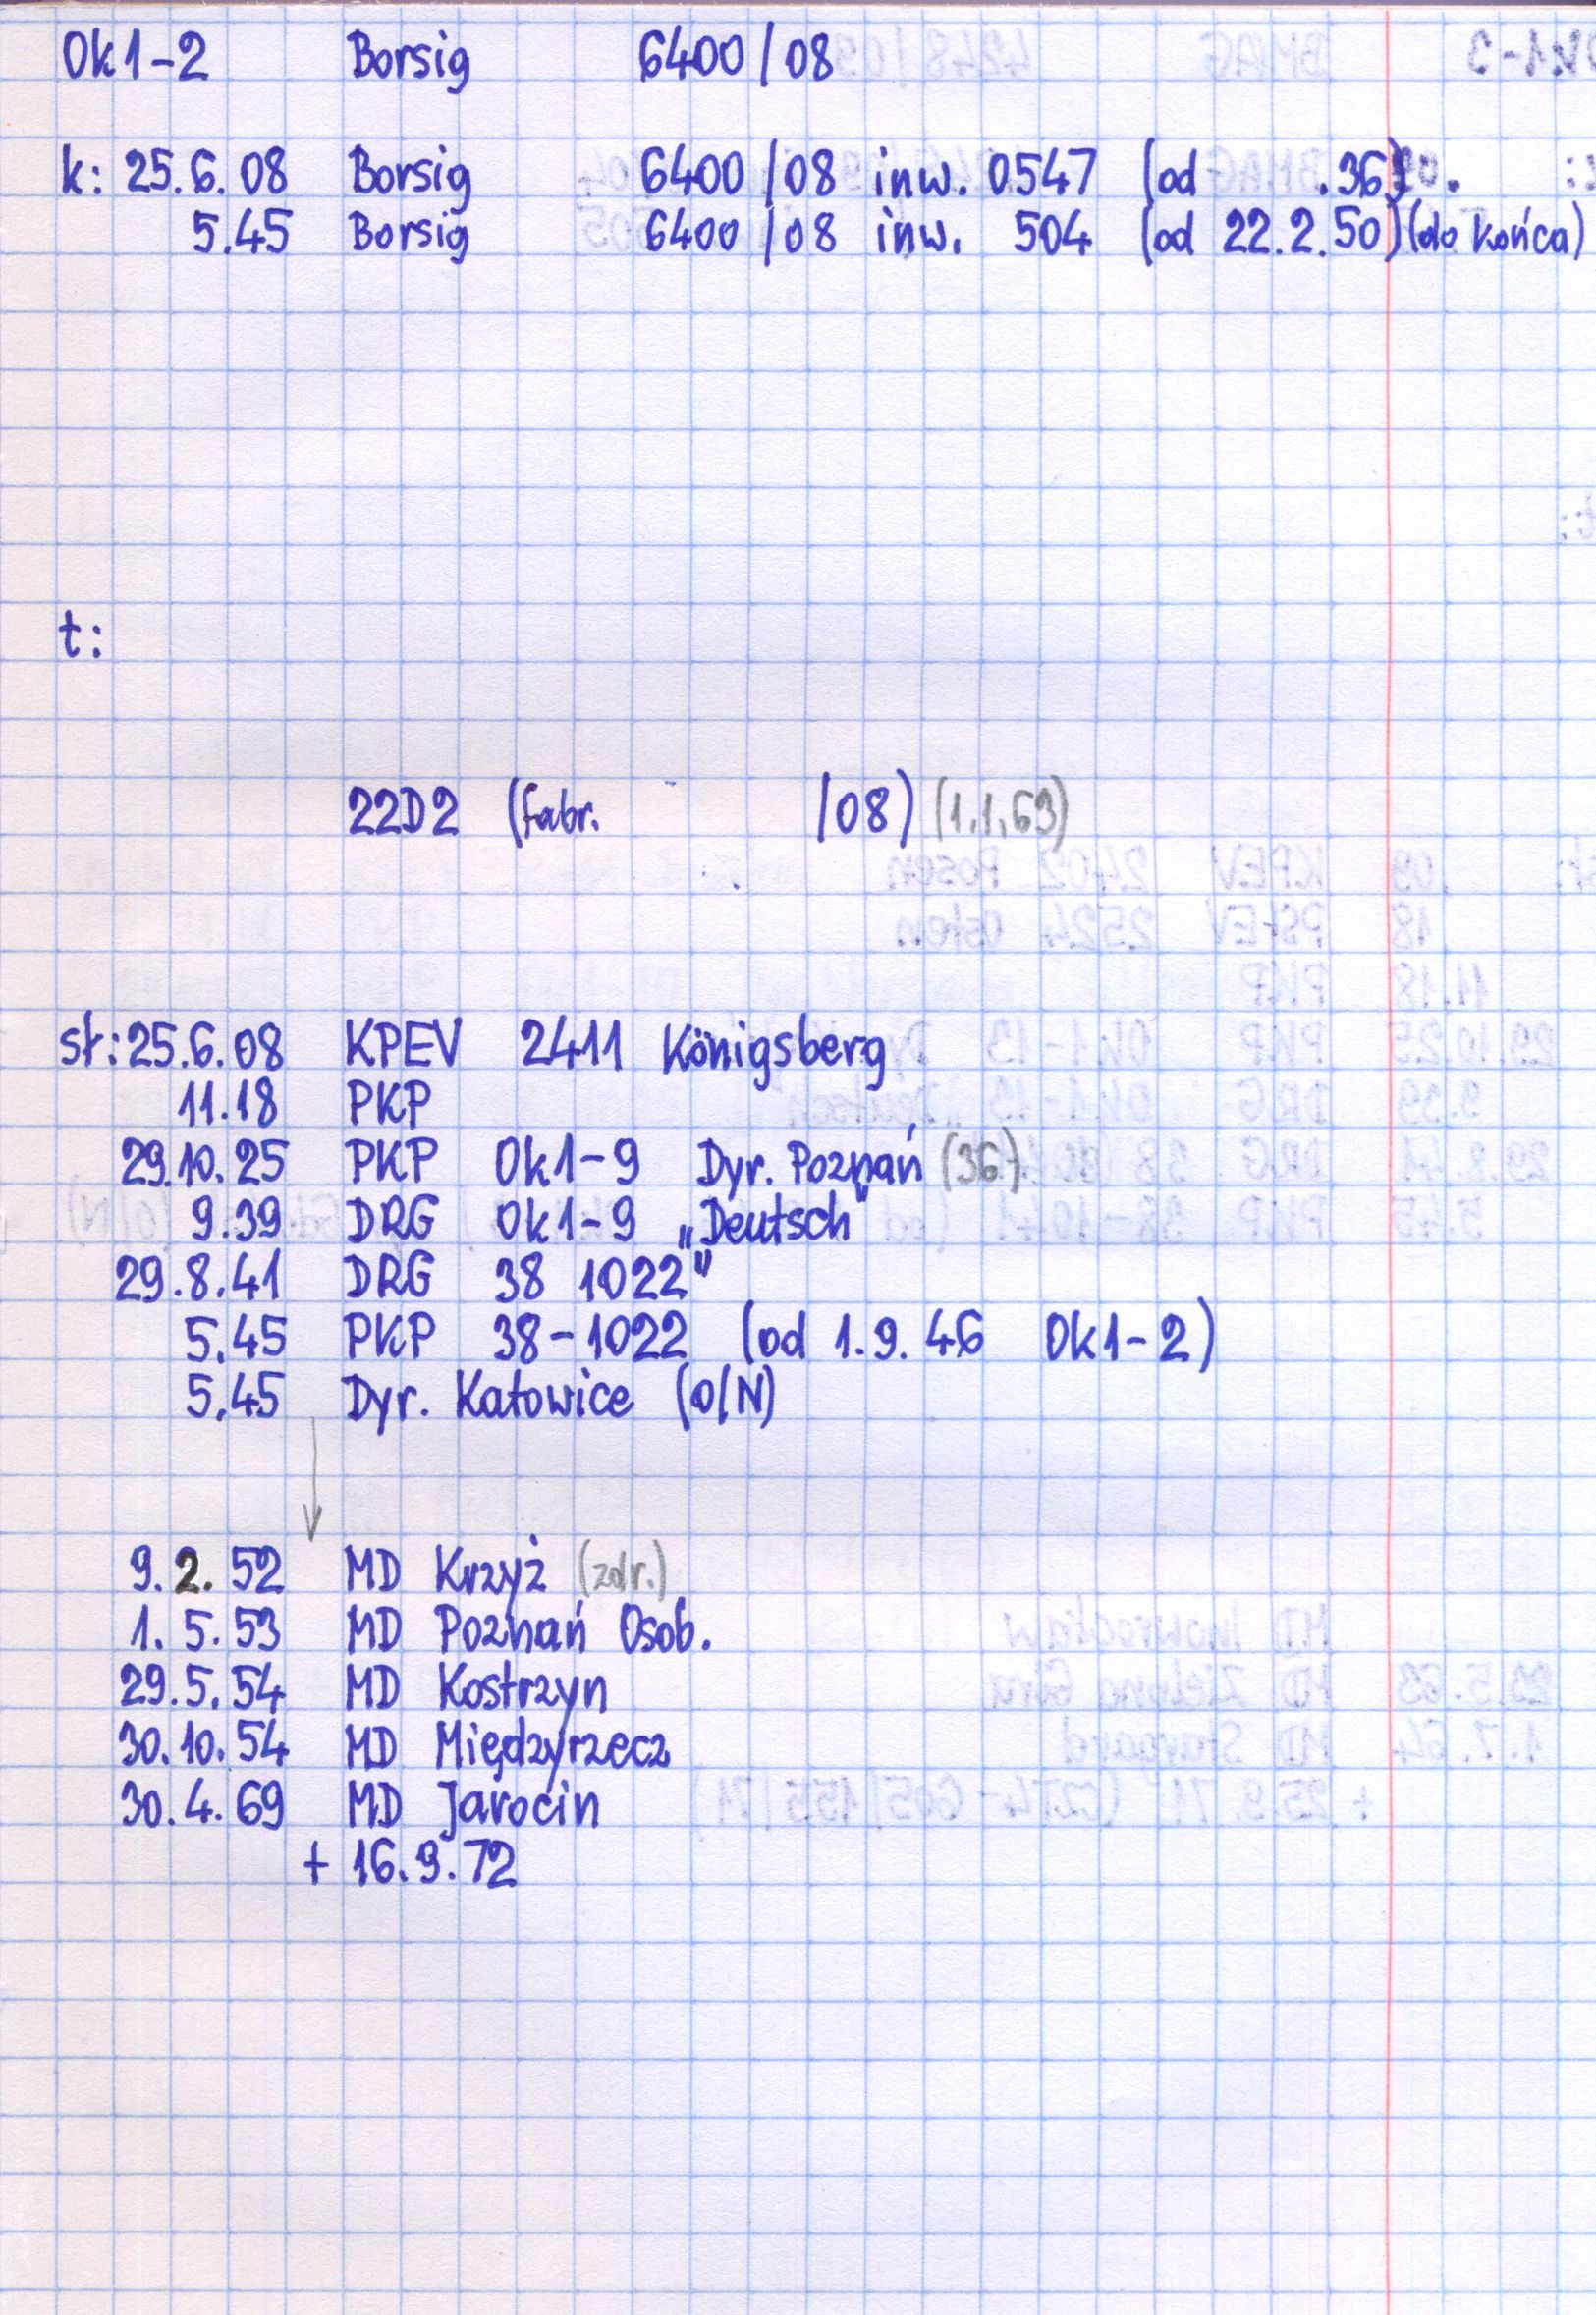 Ok1-2 Borsig 6400/08
k: 25.6.08 Borsig 6400/08 inw. 0547 (od .36).
5.45 Borsig 6400/08 inw. 504 (od 22.2.50)(do końca)
t:
22D2 (fabr. /08) (1.1.69)
st: 25.6.08 KPEV 2411 Königsberg
11.18 PKP
29.10.25 PKP Ok1-9 Dyr. Poznań (36)
9.39 DRG Ok1-9 „Deutsch"
29.8.41 DRG 38 1022"
5.45 PKP 38-1022 (od 1.9.46 Ok1-2)
5.45 Dyr. Katowice (O/N)
9.2.52 MD Krzyż (zdr.)
1.5.53 MD Poznań Osob.
29.5.54 MD Kostrzyn
30.10.54 MD Międzyrzecz
30.4.69 MD Jarocin
+ 16.9.72